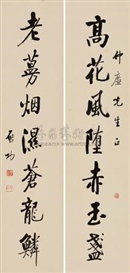 高花風堕赤玉盞
老蔓烟濕蒼龍鱗
竹廬先生正